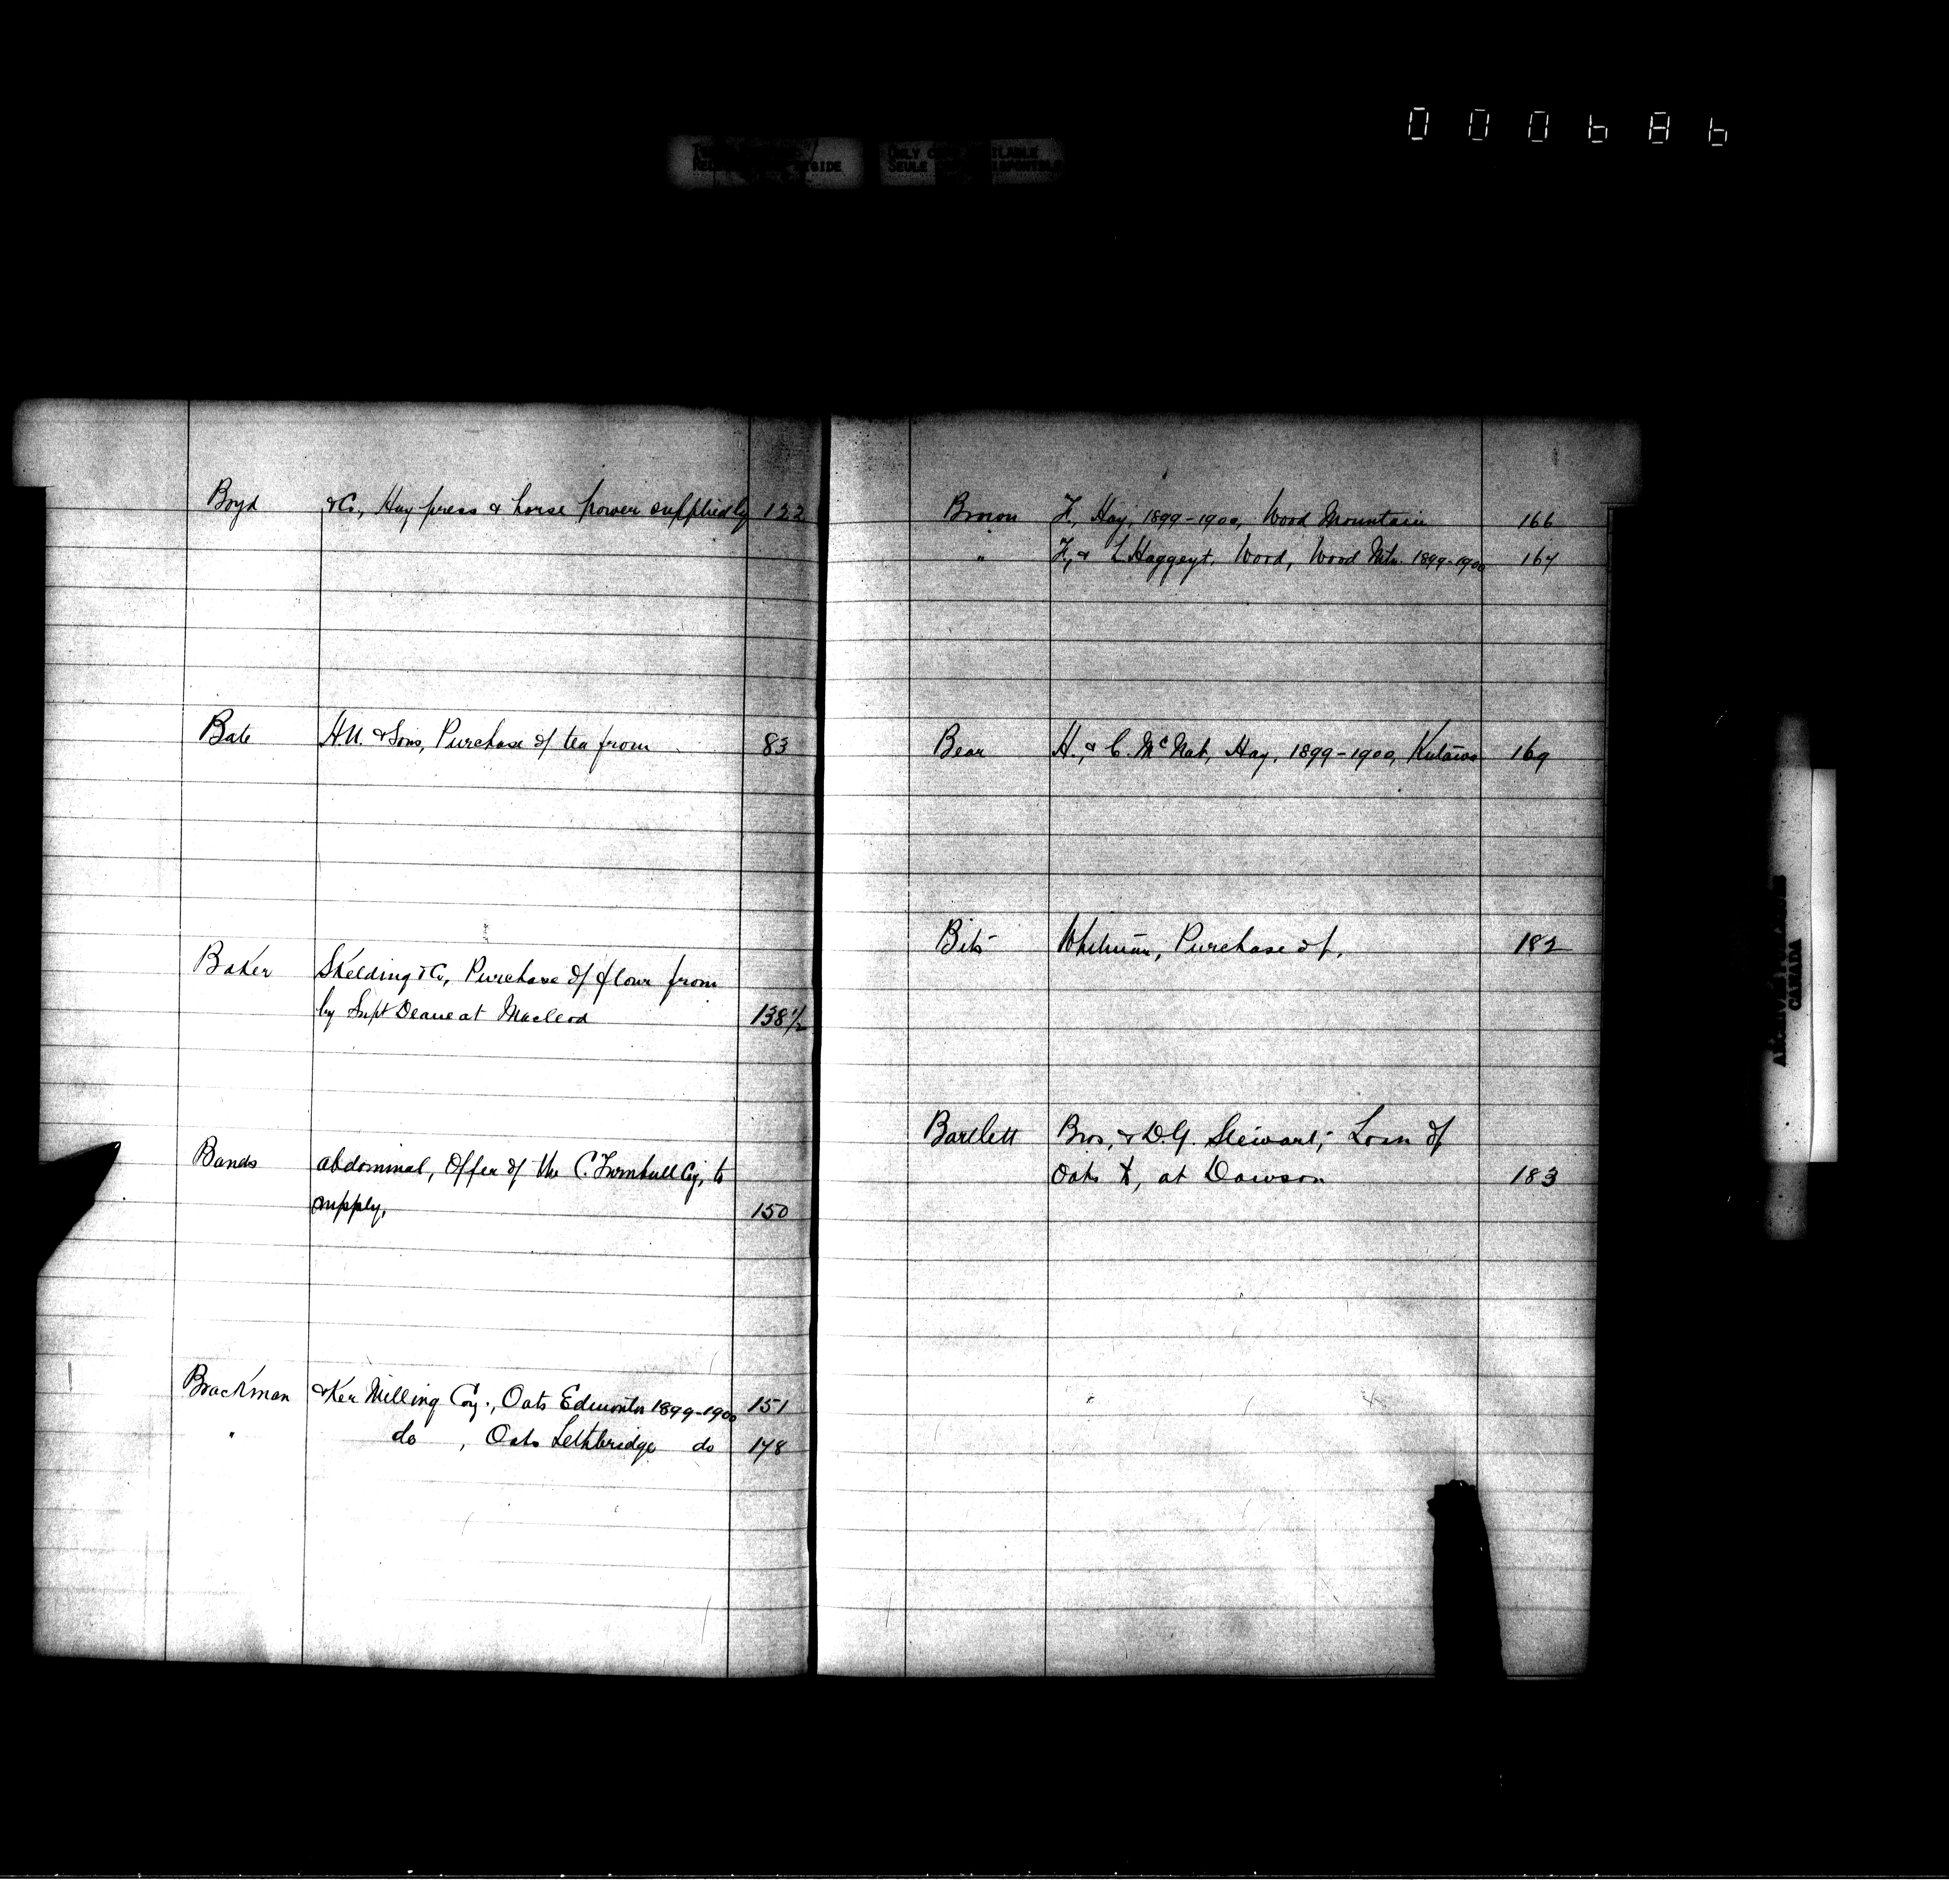 000686
ONLY
SEULE
Boyd &Co., Hay press & horse power supplied by 122
Bate H.N. & Sons, Purchase of tea from 83
Baker Skelding & Co, Purchase of flour from
by Supt Deane at Macleod 138½
Bands abdominal, Offer of the C. Turnbull Coy, to
supply, 150
Brackman & Ker Milling Coy., Oats Edmonton 1899-1900 151
" do , Oats Lethbridge do 178
Brown F., Hay, 1899-1900, Wood Mountain 166
" F., & L Haggeyt, Wood, Wood Mtn. 1899-1900 167
Bear H., & C. McNab, Hay, 1899-1900, Kutawa 169
Bits Whitman, Purchase of, 182
Bartlett Bros, & D.G. Stewart; Loan of
Oats &, at Dawson 183
CANADA